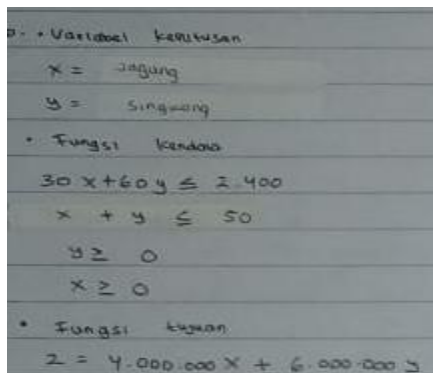 • Variabel keputusan
x = Jagung
y = Singkong
• Fungsi kendala
30 x + 60 y ≤ 2.400
x + y ≤ 50
y ≥ 0
x ≥ 0
• Fungsi tujuan
Z = 4.000.000 x + 6.000.000 y